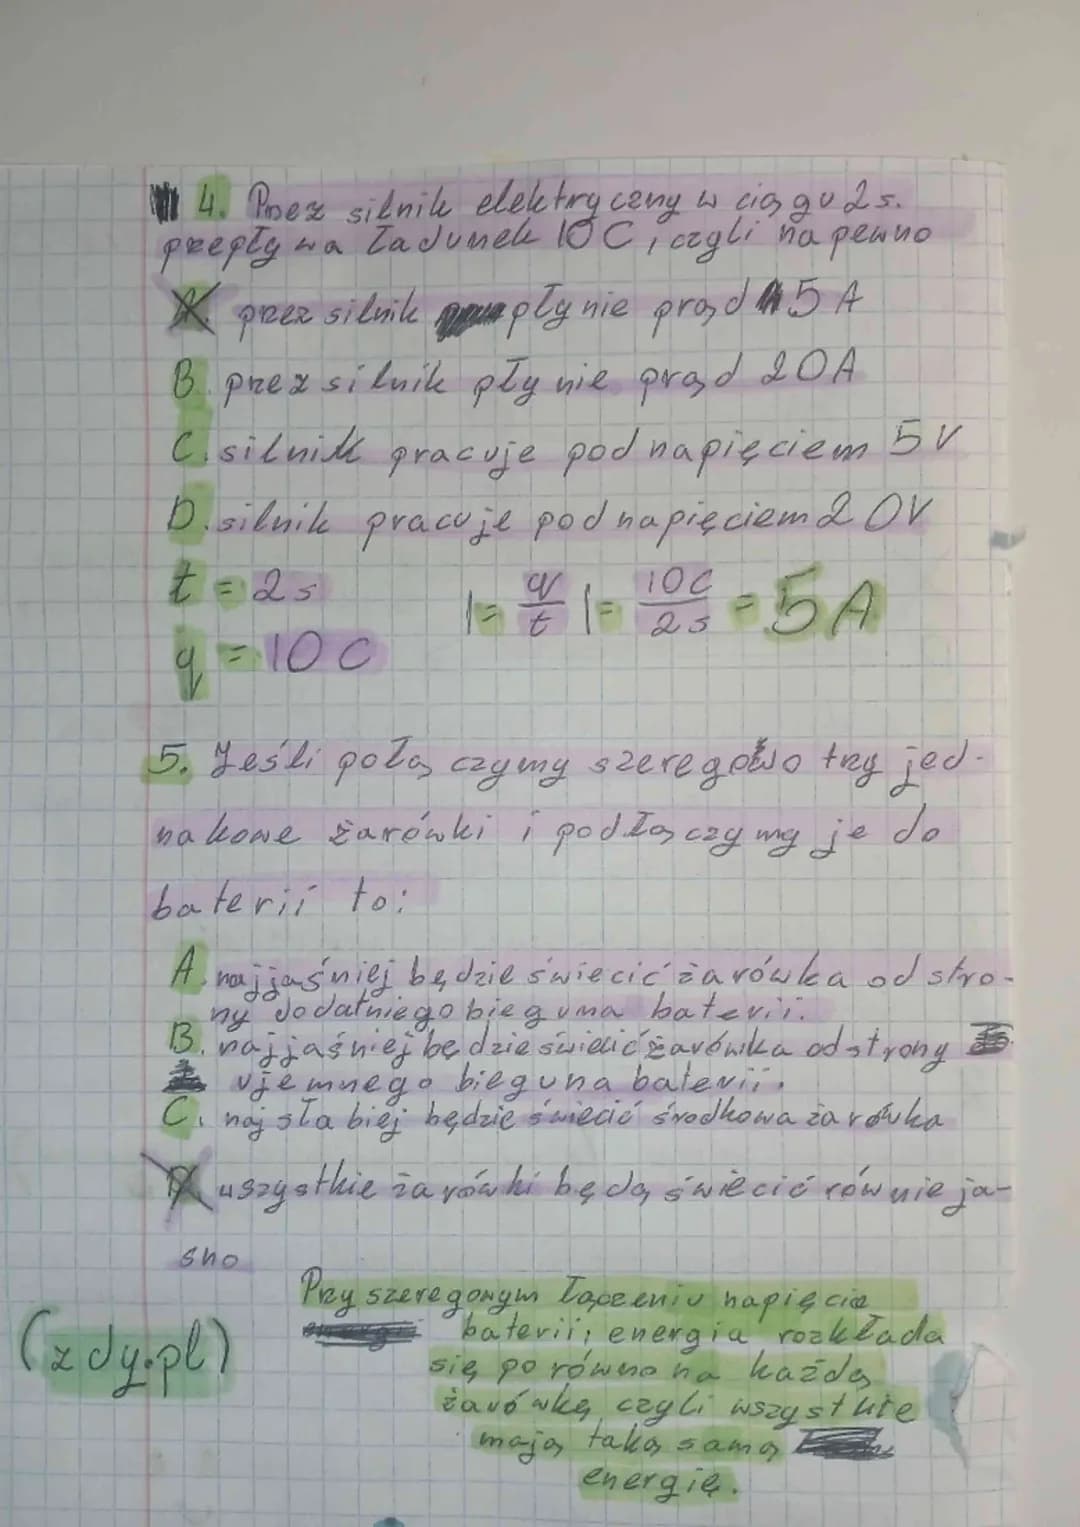 4. Przez silnik elektryczny w ciągu 2s.
przepływa ładunek 10 C, czyli na pewno
A. przez silnik płynie prąd 5 A
B. przez silnik płynie prąd 20A
C. silnik pracuje pod napięciem 5V
D. silnik pracuje pod napięciem 20V
t = 2s
q = 10 C
I = q/t I = 10C/2s = 5A
5. Jeśli połączymy szeregowo trzy jed-
nakowe żarówki i podłączymy je do
baterii to:
A. najjaśniej będzie świecić żarówka od stro-
ny dodatniego bieguna baterii.
B. najjaśniej będzie świecić żarówka od strony
ujemnego bieguna baterii.
C. najsłabiej będzie świecić środkowa żarówka
D. wszystkie żarówki będą świecić równie ja-
sno
Przy szeregowym łączeniu napięcia
baterii, energia rozkłada
się po równo na każdą
żarówkę czyli wszystkie
mają taką samą
energię.
(zdy.pl)